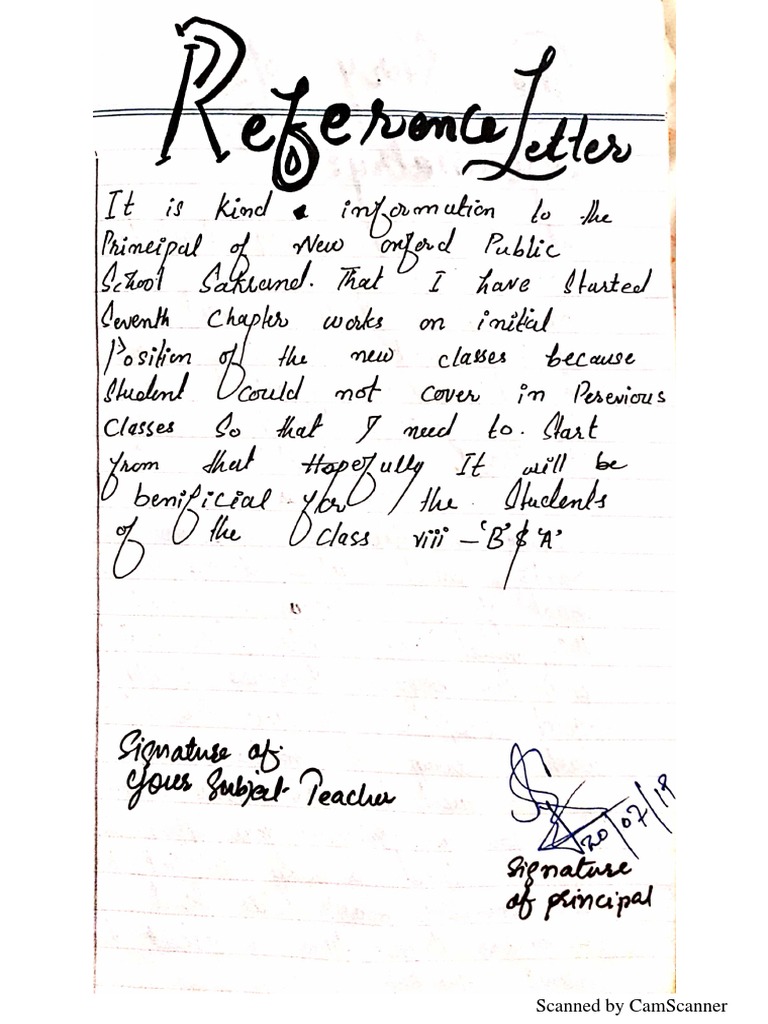 Reference Letter
It is kind information to the
Principal of New Oxford Public
School Sakrand. That I have Started
Seventh Chapter works on initial
Position of the new classes because
Student could not cover in Perevious
Classes So that I need to. Start
from that Hopefully It will be
benificial for the Students
of the Class viii - 'B' & 'A'
Signature of
Your Subject Teacher
20/07/19
Signature
of principal
Scanned by CamScanner